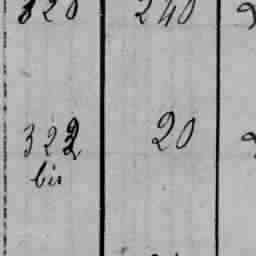 320 240
322 20
bis